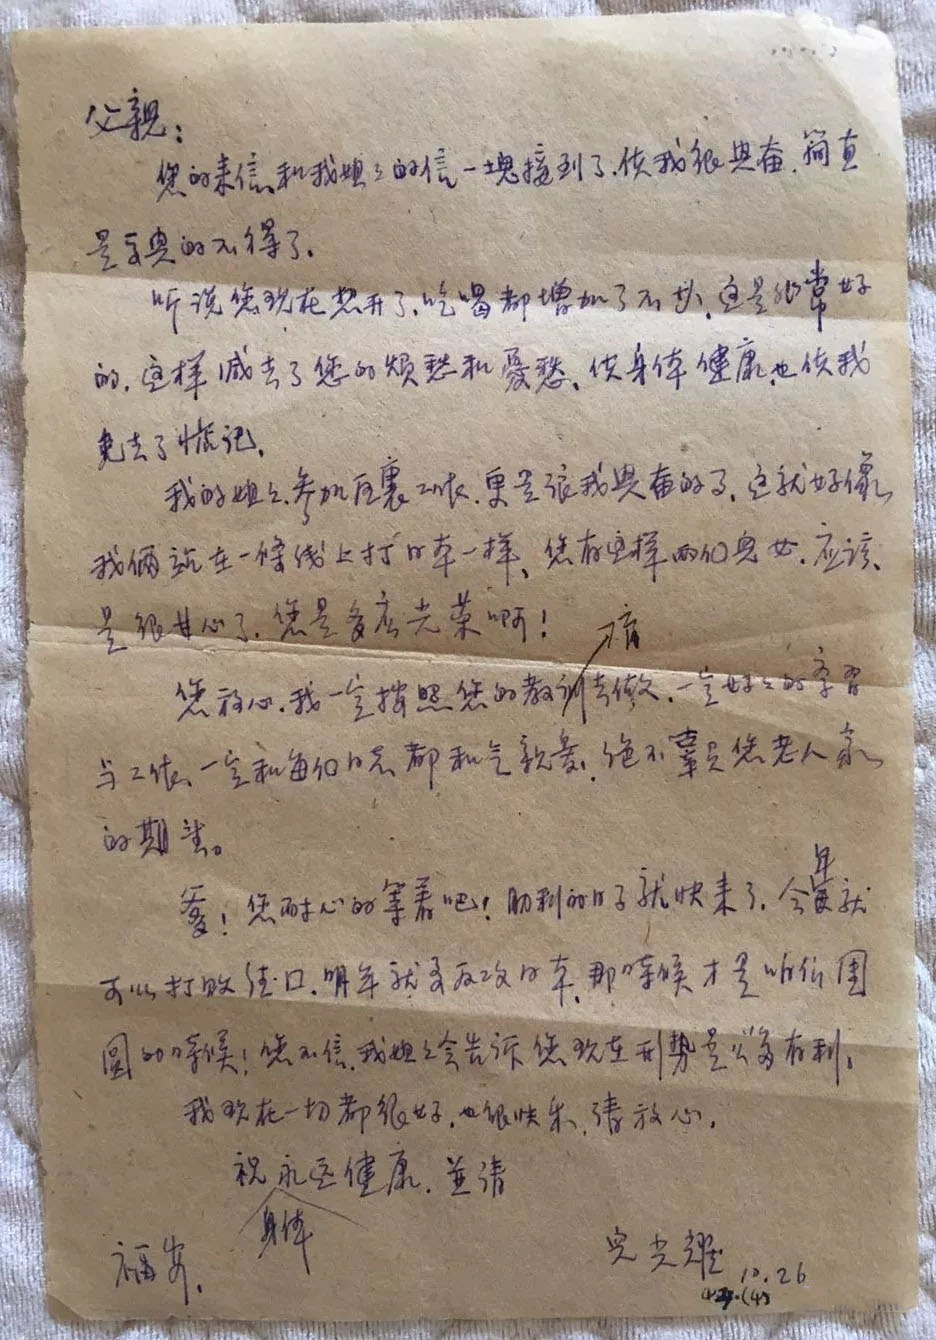 父親：
您的来信和我姐々的信一塊接到了，使我很兴奋，简直
是高兴的不得了。
听说您现在想开了，吃喝都增加了不少，这是非常好
的，这样减去了您的烦愁和憂愁，使身体健康，也使我
免去了惦记。
我的姐々参加区裏工作，更是让我兴奋的了，这就好像
我俩站在一條线上打日本一样，您有这样两们儿女，应该
是很甘心了，您是多広光荣啊！
您放心，我一定按照您的教训去做，一定好々的学習
与工作，一定和每们同志都和气親爱，绝不辜負您老人家
的期望。
爹！您耐心的等着吧！勝利的日子就快来了，今年就
可以打败德口，明年就要反攻日本，那時候才是咱们團
圓的時候！您不信，我姐々会告诉您现在形势是多有利。
我现在一切都很好，也很快乐，请放心。
祝永远健康，並请
身体
福安。
儿光耀
10.26